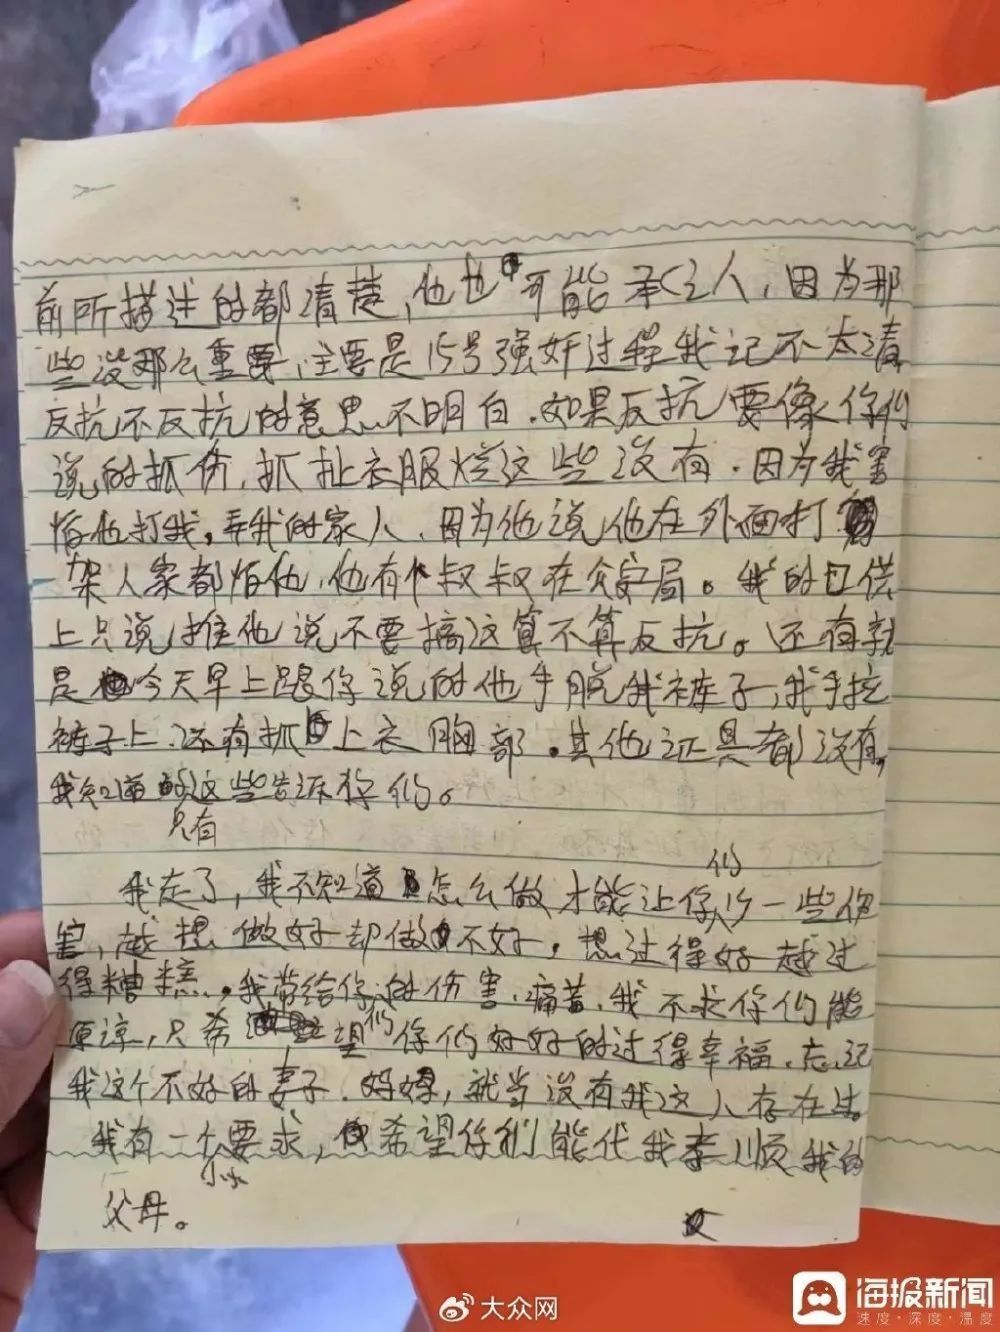 前所描述的都清楚，他也可能承认，因为那
些没那么重要，主要是15号强奸过程我记不太清
反抗不反抗的意思不明白．如果反抗要像你们
说的抓伤，抓扯衣服烂这些没有．因为我害
怕他打我，弄我的家人．因为他说他在外面打
架人家都怕他，他有个叔叔在公安局。我的口供
上只说推他说不要搞这算不算反抗。还有就
是今天早上跟你说的他手脱我裤子，我手拉
裤子上．还有抓上衣胸部．其他证具都没有，
我知道的只有这些告诉你们。
我走了，我不知道怎么做才能让你们少一些伤
害，越想做好却做不好，想过得好越过
得糟糕．我带给你们的伤害．痛苦．我不求你们能
原谅，只希望你们好好的过得幸福．忘记
我这个不好的妻子．妈妈，就当没有我这人存在过。
我有一个小小要求，希望你们能代我孝顺我的
父母。
大众网
海报新闻
速度·深度·温度